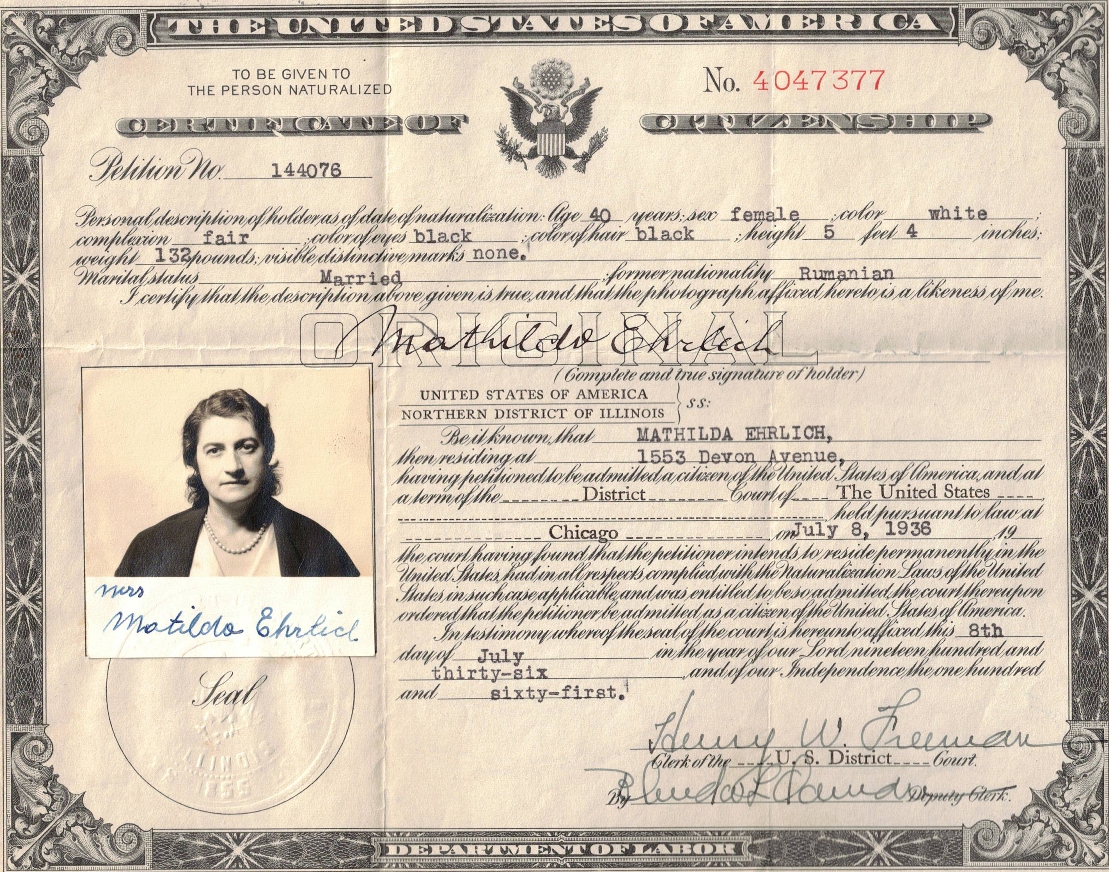 THE UNITED STATES OF AMERICA
TO BE GIVEN TO
THE PERSON NATURALIZED
No. 4047377
CERTIFICATE OF CITIZENSHIP
Petition No. 144076
Personal description of holder as of date of naturalization: Age 40 years; sex female ; color white ;
complexion fair ; color of eyes black ; color of hair black ; height 5 feet 4 inches;
weight 132 pounds; visible distinctive marks none.
Marital status Married ; former nationality Rumanian
I certify that the description above given is true, and that the photograph affixed hereto is a likeness of me.
ORIGINAL
Mathilda Ehrlich
(Complete and true signature of holder)
UNITED STATES OF AMERICA
NORTHERN DISTRICT OF ILLINOIS } ss:
Be it known, that MATHILDA EHRLICH,
then residing at 1553 Devon Avenue,
having petitioned to be admitted a citizen of the United States of America, and at
a term of the District Court of The United States
held pursuant to law at
Chicago on July 8, 1936 19
the court having found that the petitioner intends to reside permanently in the
United States, had in all respects complied with the Naturalization Laws of the United
States in such case applicable, and was entitled to be so admitted, the court thereupon
ordered that the petitioner be admitted as a citizen of the United States of America.
In testimony whereof the seal of the court is hereunto affixed this 8th
day of July in the year of our Lord nineteen hundred and
thirty-six , and of our Independence the one hundred
and sixty-first.
Mrs
Matilda Ehrlich
Seal
ILLINOIS
Henry W. Freeman
Clerk of the U. S. District Court.
By Deputy Clerk.
DEPARTMENT OF LABOR